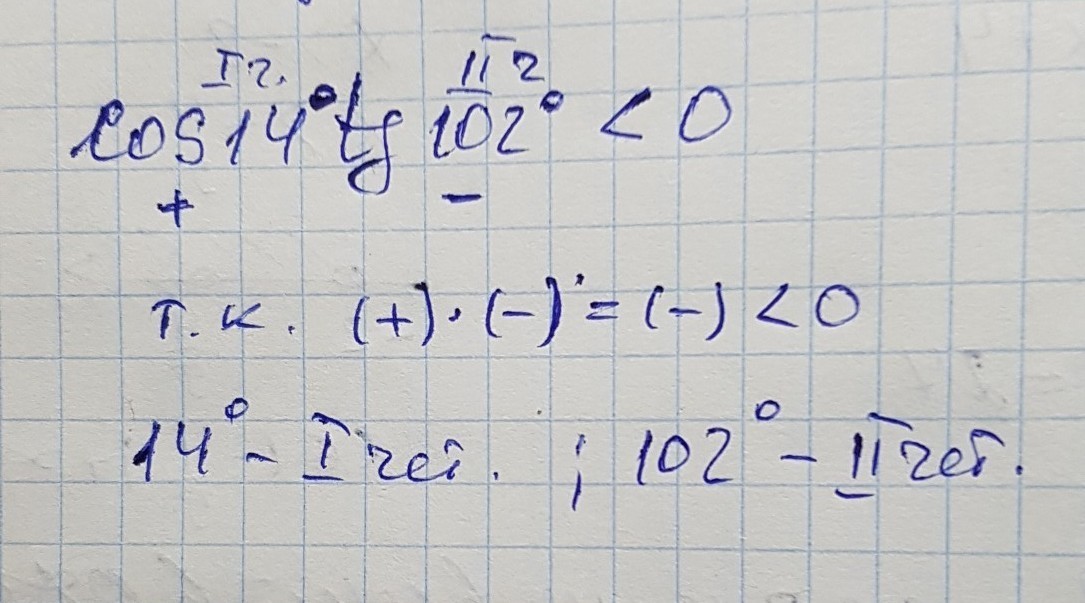 I ч. II ч
cos 14° tg 102° < 0
+ −
т.к. (+)·(−) = (−) < 0
14° – I чет. ; 102° – II чет.